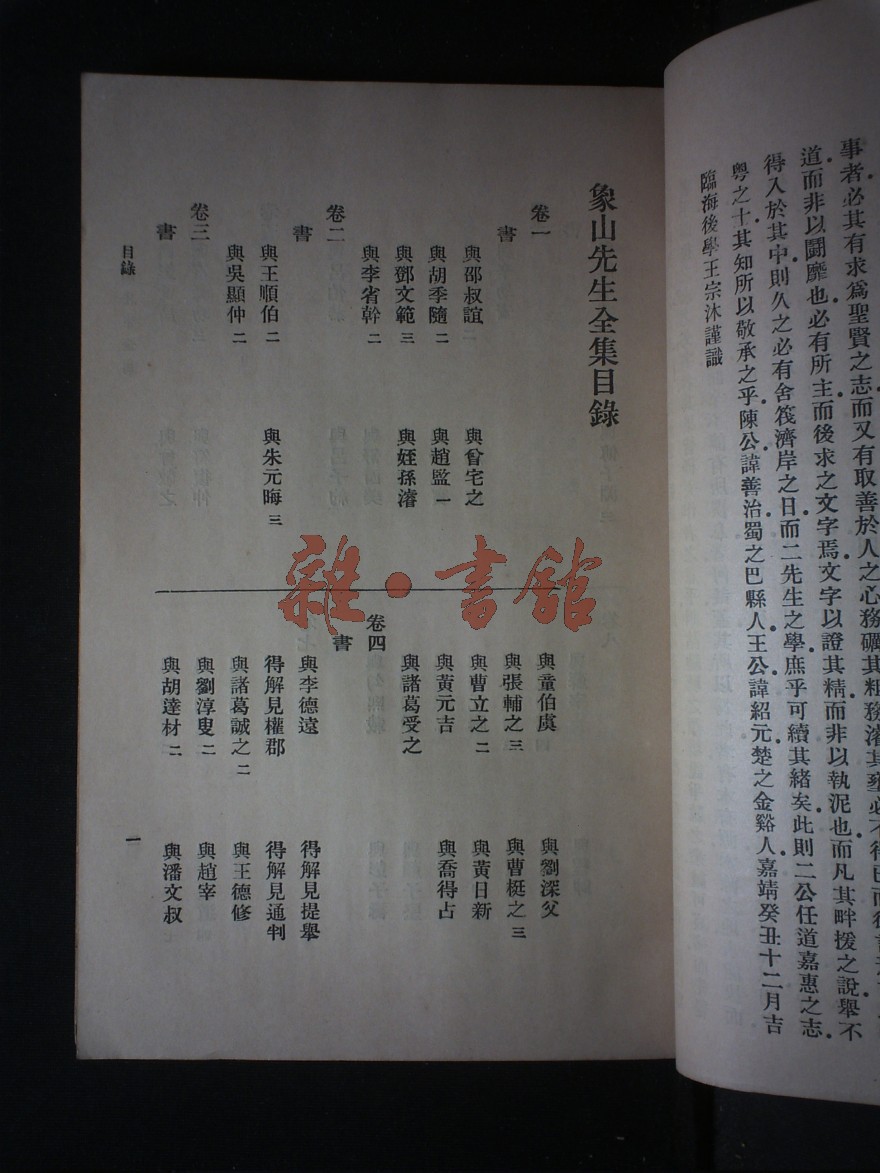 事者必其有求爲聖賢之志而又有取善於人之心務礪其粗務濬其
道而非以鬪靡也必有所主而後求之文字焉文字以證其精而非以執泥也而凡其畔援之說舉不
得入於其中則久之必有舍筏濟岸之日而二先生之學庶乎可續其緒矣此則二公任道嘉惠之志
粵之士其知所以敬承之乎陳公諱善治蜀之巴縣人王公諱紹元楚之金谿人嘉靖癸丑十二月吉
臨海後學王宗沐謹識
象山先生全集目錄
卷一
書
與邵叔誼 與曾宅之
與胡季隨 二 與趙監 一
與鄧文範 三 與姪孫濬
與李省幹 二
卷二
書
與王順伯 二 與朱元晦 三
與吳顯仲 二
卷三
書
與童伯虞 與劉深父
與張輔之 三 與曹梃之 三
與曹立之 二 與黃日新
與黃元吉 與喬得占
與諸葛受之
卷四
書
與李德遠 得解見提舉
得解見權郡 得解見通判
與諸葛誠之 二 與王德修
與劉淳叟 二 與趙宰
與胡達材 二 與潘文叔
目錄
一
雜·書館